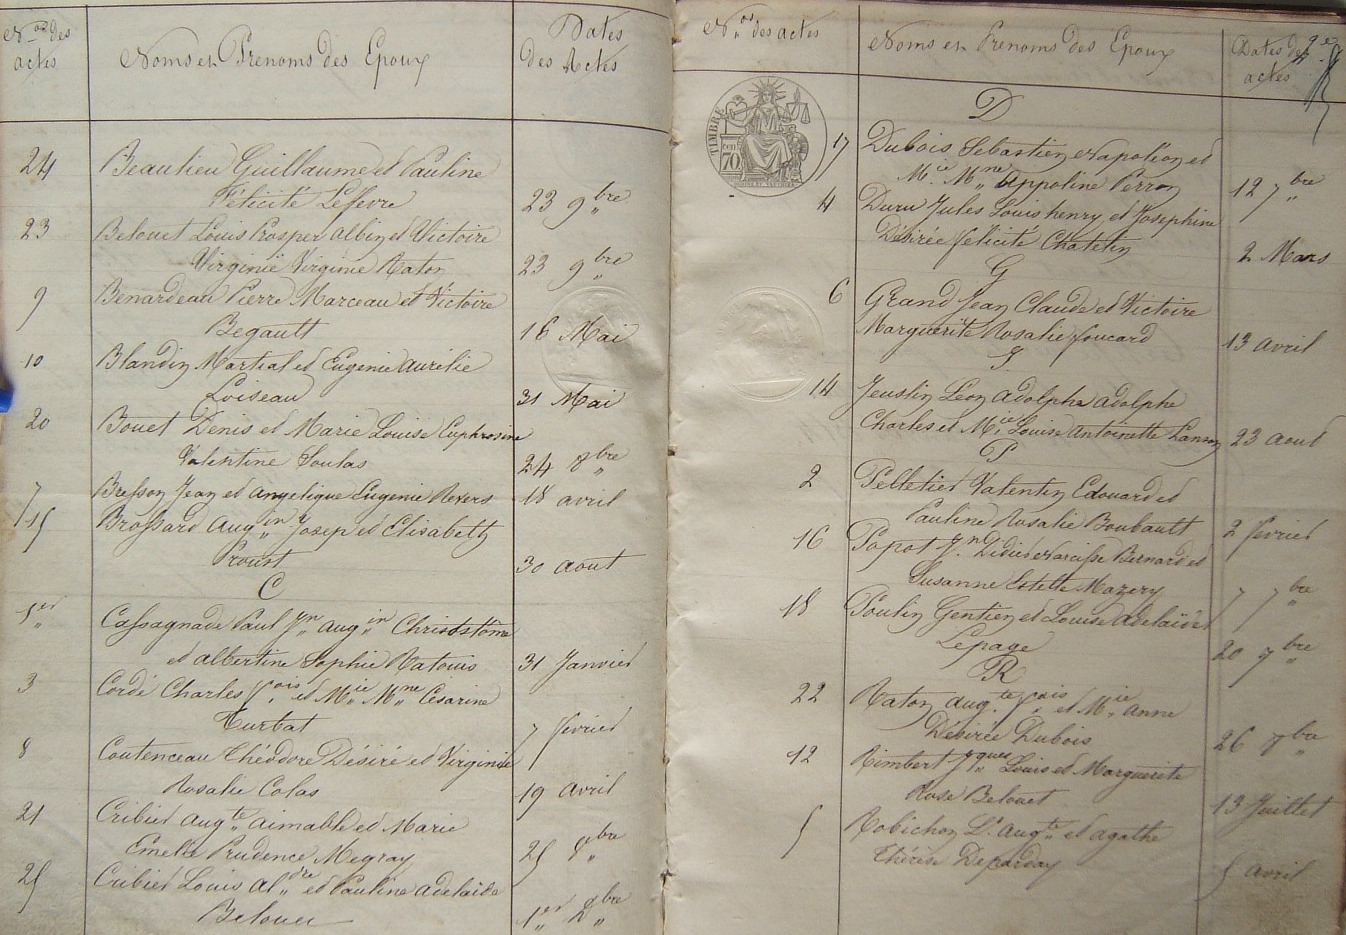 Nos des actes
Noms et Prenoms des Epoux
Dates des Actes
24 Beaulieu Guillaume et Pauline
Félicité Lefevre 23 9bre
23 Belouet Louis Prosper Albin et Victoire
Virginie Virginie Raton 23 9bre
9 Benardeau Pierre Marceau et Victoire
Begault 16 Mai
10 Blandin Martial et Eugenie aurélie
Loiseau 31 Mai
20 Bouet Denis et Marie Louise Euphrosine
Valentine Soulas 24 8bre
7 Bresson Jean et angelique Eugenie Revers 18 avril
15 Brossard Augin Josep et Elisabeth
Proust 30 aout
C
1er Cassagnade Paul Jn augin Christstôme
et albertine Sophie Ratouis 31 Janvier
3 Cordé Charles fois et Mie Mne Césarine
Turbat 7 fevrier
8 Coutenceau Théodore Désiré et Virginie
Rosalie Colas 19 avril
21 Cribier augte aimable et Marie
Emelie Prudence Megray 25 8bre
25 Cribier Louis aldre et Pauline adelaide
Belouet 1er Xbre
Nos des actes
Noms et Prenoms des Epoux
Dates des actes
D
TIMBRE
70
17 Dubois Sebastien Napoleon et
Mie Mne Appoline Perron 12 7bre
4 Duru Jules Louis henry et Josephine
Désirée félicité Chatelin 2 Mars
G
6 Grand Jean Claude et Victoire
Marguerite Rosalie foucard 13 avril
J
14 Jeuslin Leon adolphe adolphe
Charles et Mie Louise Antoinette Lanson 23 aout
P
2 Pelletier Valentin Edouard et
Pauline Rosalie Boubault 2 fevrier
16 Papot Jn Didier Narcisse Bernard et
Susanne Estelle Mazery 7 7bre
18 Poulin Gentien et Louise adelaïde
Lepage 20 9bre
R
22 Raton augte fois et Mie anne
Désirée Dubois 26 8bre
12 Rimbert Jques Louis et Marguerite
Rose Belouet 13 Juillet
5 Robichon Ls augte et agathe
Thérèse Deparday 5 avril